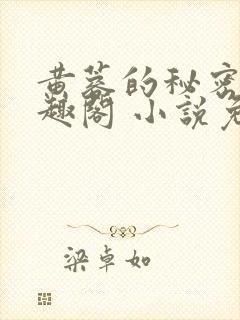 黄蓉的秘密
趣阁 小説免
梁卓如